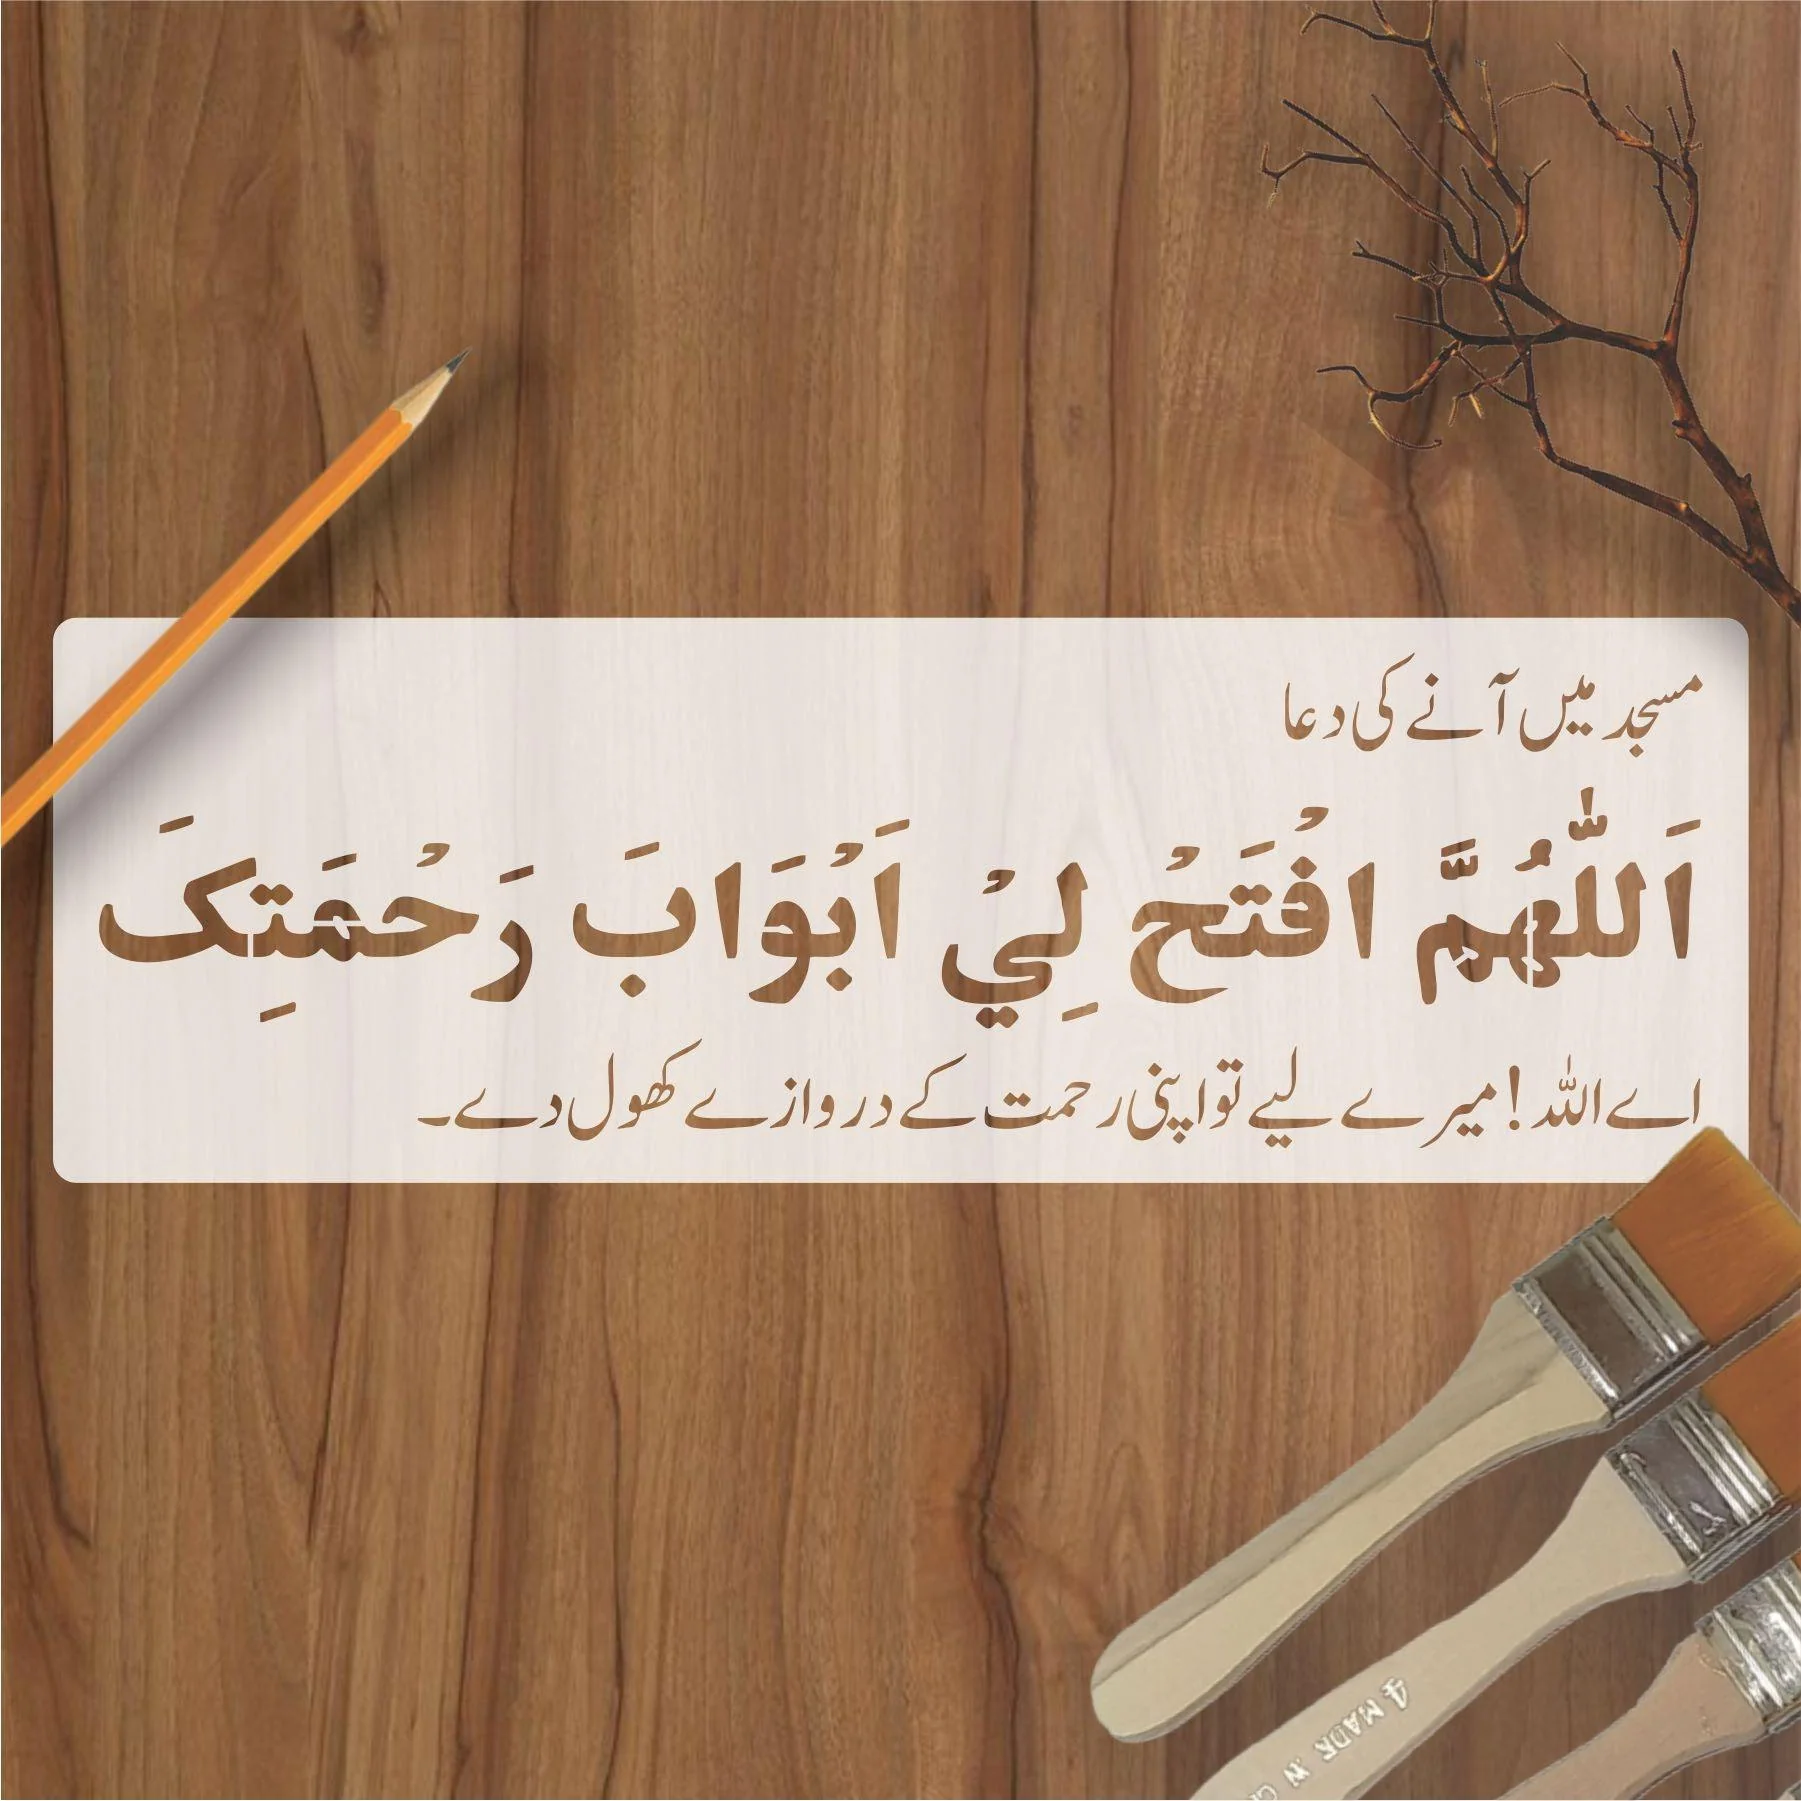 مسجد میں آنے کی دعا
اَللّٰهُمَّ افْتَحْ لِيْ اَبْوَابَ رَحْمَتِکَ
اے اللہ! میرے لیے تو اپنی رحمت کے دروازے کھول دے۔
4 MADE IN